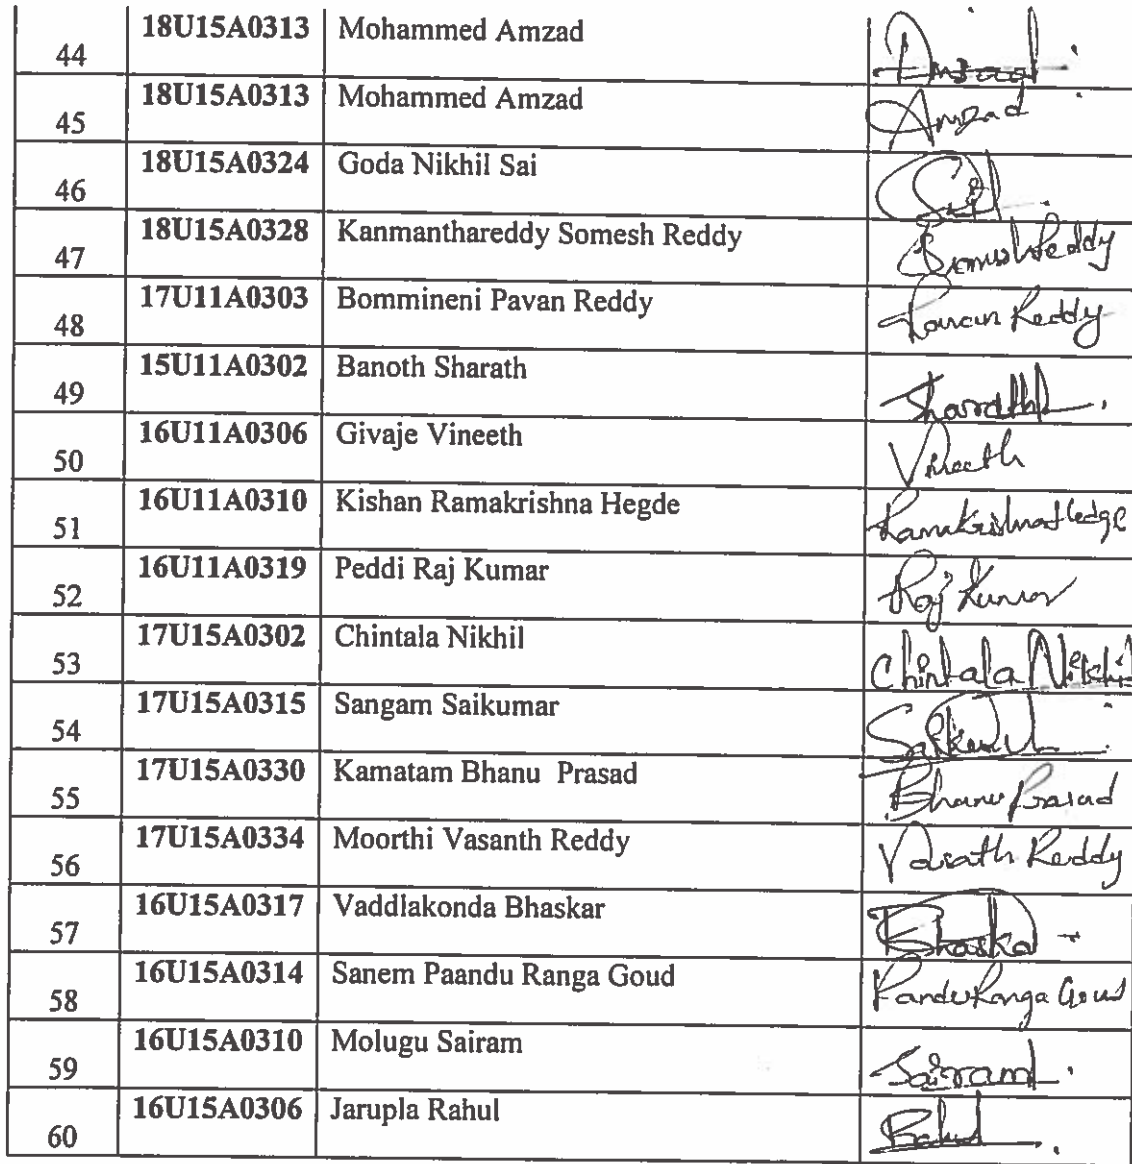 44 18U15A0313 Mohammed Amzad Amzad
45 18U15A0313 Mohammed Amzad Amzad
46 18U15A0324 Goda Nikhil Sai
47 18U15A0328 Kanmanthareddy Somesh Reddy Somesh Reddy
48 17U11A0303 Bommineni Pavan Reddy Pavan Reddy
49 15U11A0302 Banoth Sharath Sharath
50 16U11A0306 Givaje Vineeth Vineeth
51 16U11A0310 Kishan Ramakrishna Hegde Ramakrishna Hedge
52 16U11A0319 Peddi Raj Kumar Raj Kumar
53 17U15A0302 Chintala Nikhil Chintala Nikhil
54 17U15A0315 Sangam Saikumar Saikumar
55 17U15A0330 Kamatam Bhanu Prasad Bhanu Prasad
56 17U15A0334 Moorthi Vasanth Reddy Vasath Reddy
57 16U15A0317 Vaddlakonda Bhaskar Bhaska
58 16U15A0314 Sanem Paandu Ranga Goud Pandu Ranga Goud
59 16U15A0310 Molugu Sairam Sairam
60 16U15A0306 Jarupla Rahul Rahul